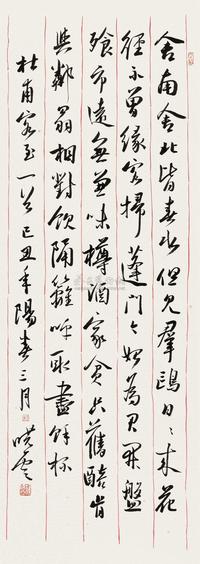 舍南舍北皆春水但见群鸥日日来花
径不曾缘客扫蓬门今始为君开盘
飧市远无兼味樽酒家贫只旧醅肯
与邻翁相对饮隔篱呼取尽余杯
杜甫客至一首己丑年阳春三月晓云